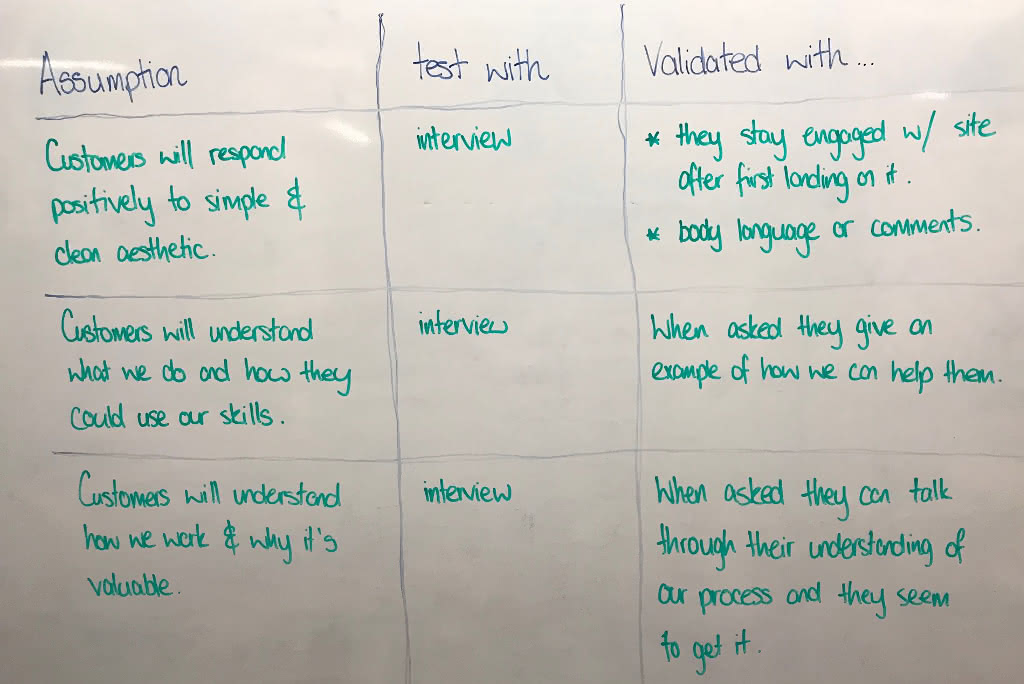 Assumption
test with
Validated with...
Customers will respond
positively to simple &
clean aesthetic.
interview
* they stay engaged w/ site
after first landing on it.
* body language or comments.
Customers will understand
what we do and how they
could use our skills.
interview
When asked they give an
example of how we can help them.
Customers will understand
how we work & why it's
valuable.
interview
When asked they can talk
through their understanding of
our process and they seem
to get it.